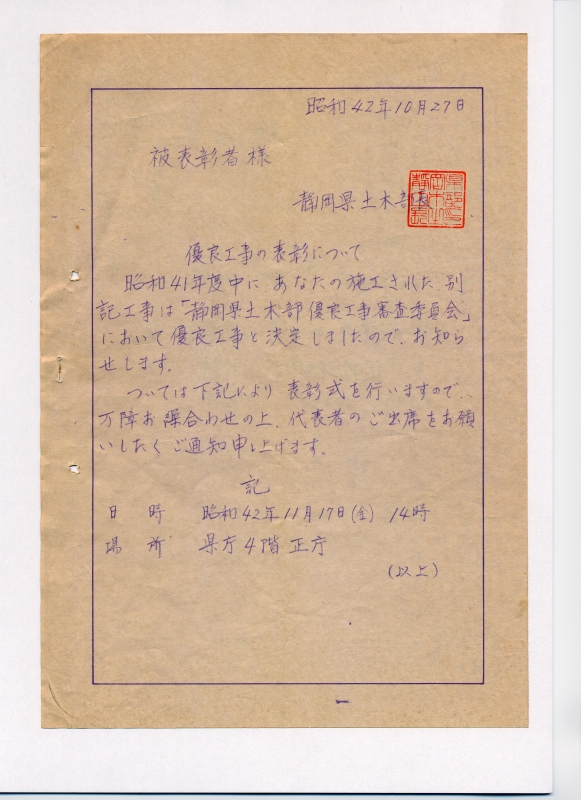 昭和42年10月27日
被表彰者様
静岡県土木部長
優良工事の表彰について
昭和41年度中に、あなたの施工された、別
記工事は「静岡県土木部優良工事審査委員会」
において優良工事と決定しましたので、お知ら
せします。
ついては下記により表彰式を行いますので、
万障お繰合わせの上、代表者のご出席をお願
いしたくご通知申し上げます。
記
日 時 昭和42年11月17日(金) 14時
場 所 県庁4階正庁
(以上)